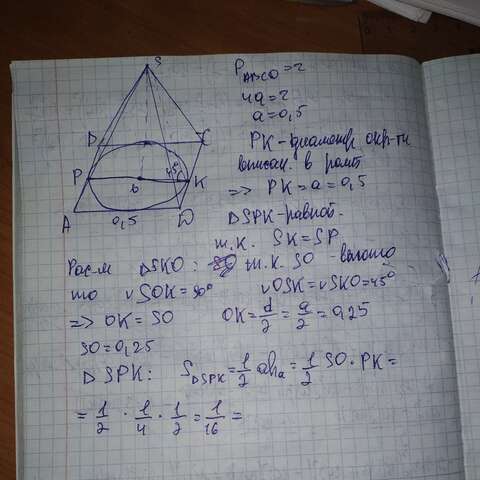 S
D C
P K
45°
O
A D
0,5
P ABCD = 2
4a = 2
a = 0,5
PK - диаметр окр-ти
вписан. в ромб
=> PK = a = 0,5
ΔSPK - равноб.
т.к. SK = SP
Рас-м ΔSKO : т.к. SO - высота
то ∨SOK = 90° ∨OSK = ∨SKO = 45°
=> OK = SO OK = d/2 = a/2 = 0,25
SO = 0,25
ΔSPK: S ΔSPK = 1/2 ah a = 1/2 SO · PK =
= 1/2 · 1/4 · 1/2 = 1/16 =